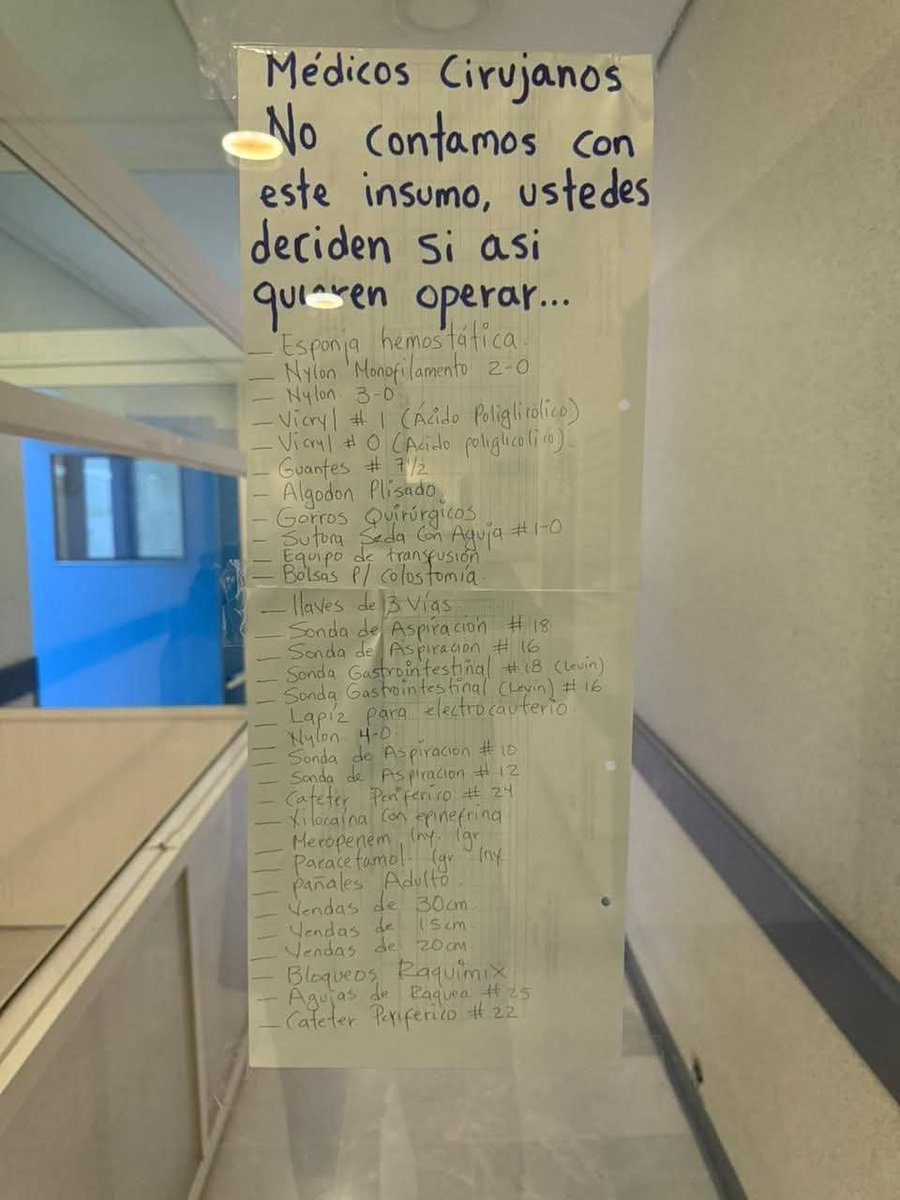 Médicos Cirujanos
No contamos con
este insumo, ustedes
deciden si asi
quieren operar...
— Esponja hemostática.
— Nylon Monofilamento 2-0
— Nylon 3-0
— Vicryl # 1 (Ácido Poliglicolico)
— Vicryl # 0 (Acido poliglicolico).
— Guantes # 7 1/2
— Algodon Plisado
— Gorros Quirúrgicos
— Sutura Seda Con Aguja #1-0
— Equipo de transfusión
— Bolsas P/ Colostomía.
— llaves de 3 Vías.
— Sonda de Aspiración # 18
— Sonda de Aspiracion # 16
— Sonda Gastrointestinal #18 (Levin)
— Sonda Gastrointestinal (Levin) # 16
— Lapiz para electrocauterio
— Nylon 4-0.
— Sonda de Aspiracion # 10
— Sonda de Aspiracion # 12
— Cateter Periferico # 24
— Xilocaína Con epinefrina
— Meropenem Iny. 1gr
— Paracetamol. 1gr Iny
— pañales Adulto.
— Vendas de 30cm.
— Vendas de 15cm.
— Vendas de 20cm.
— Bloqueos Raquimix
— Agujas de Raquea #25
— Cateter Periferico #22